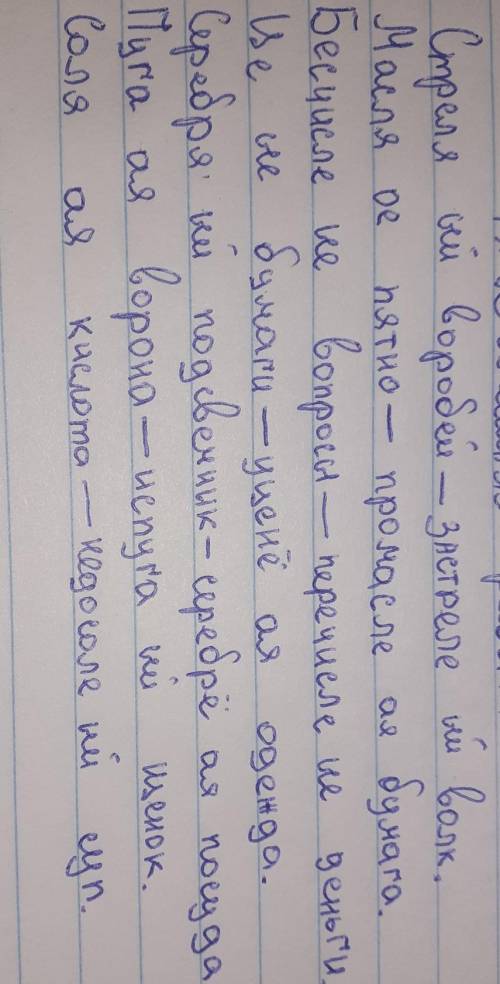 Стреля ый воробей — зястреле ый волк.
Масля ое пятно — промасле ая бумага.
Бесчисле ые вопросы — перечисле ые деньги.
Це ые бумаги — уценё ая одежда.
Серебря ый подсвечник — серебрё ая посуда
Пуга ая ворона — испуга ый щенок.
Соля ая кислота — недосоле ый суп.